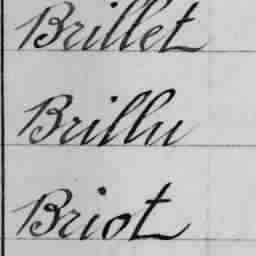 Brillet
Brillu
Briot